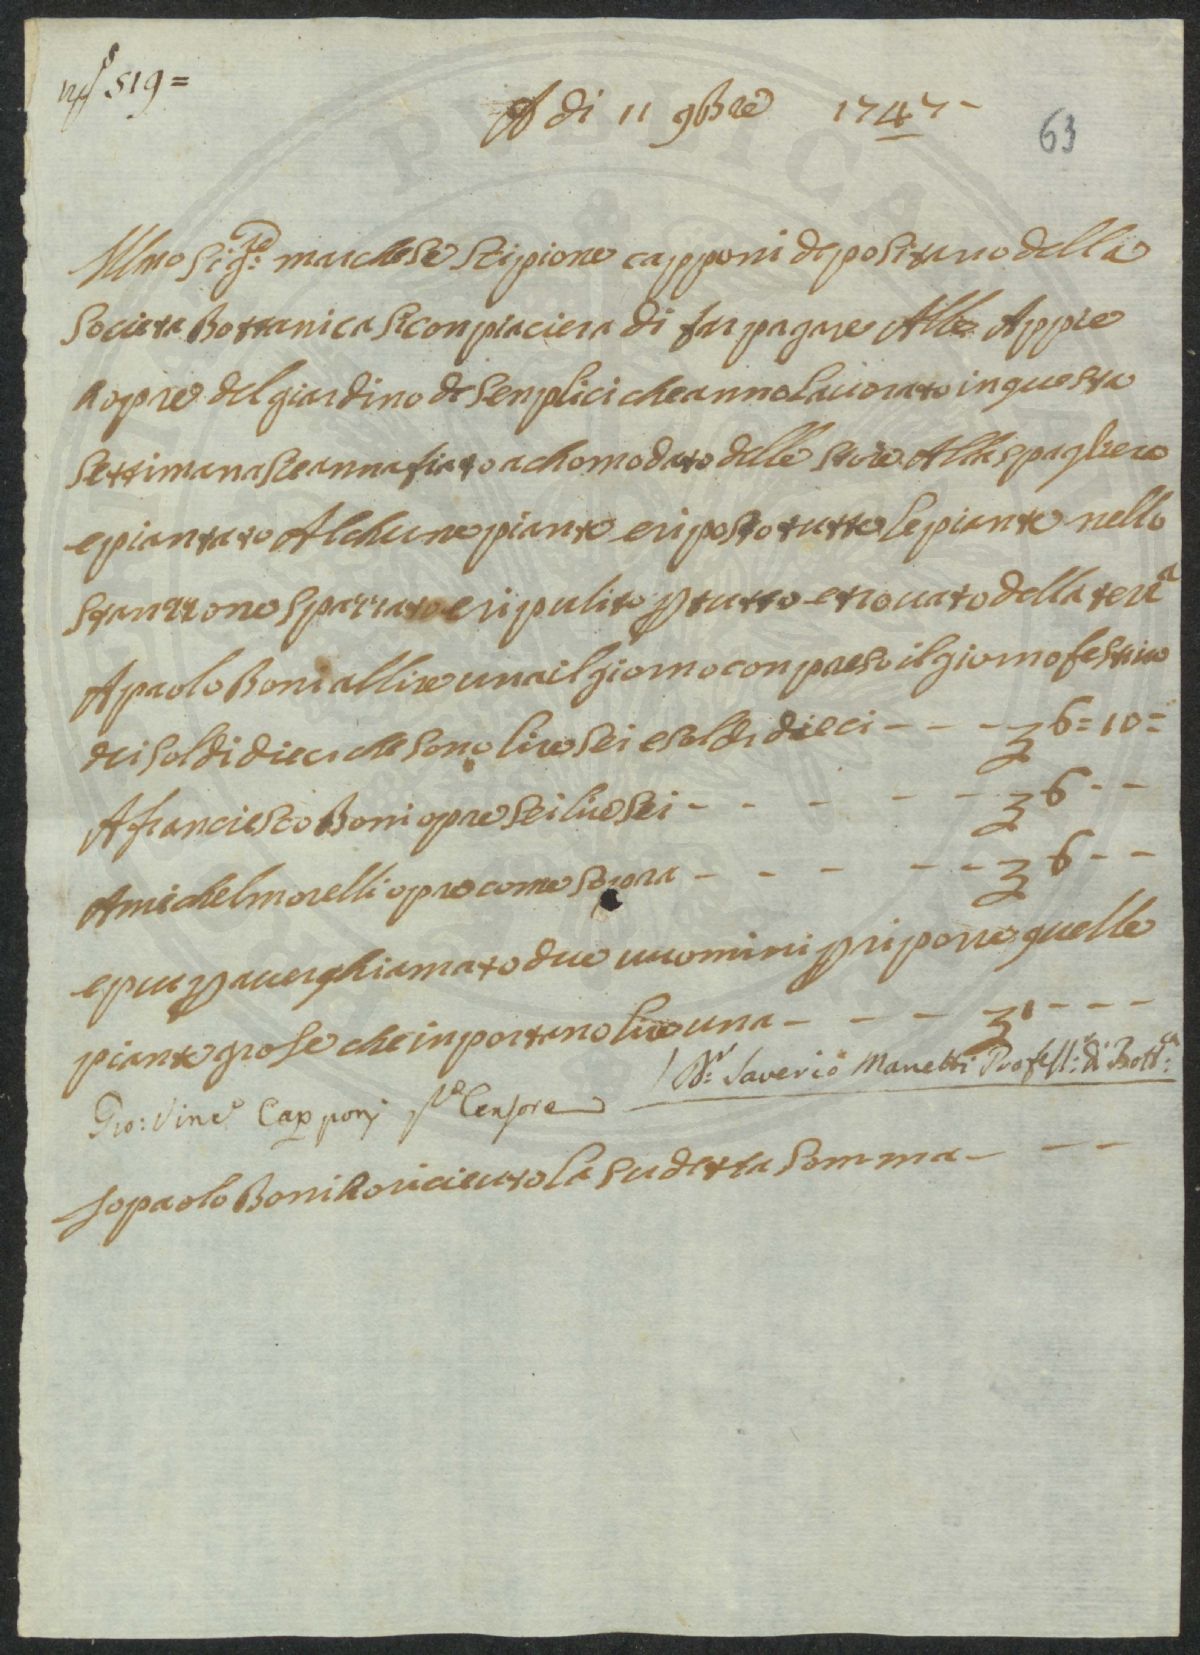 519=
A di 11 9bre 1747-
63
Illmo Sigre: marchese Scipione capponi depositario della
Societa Bottanica Siconpiaciera di far pagare Alle Appie
Aopre del giardino de Senplici cheanno Lavorato in questa
Settimana Seanna fiato achomodato delle Stoie Alla Spagliera
epiantato Alchune piante eriposto tutte le piante nello
Stanzone Spazzato eripulito p tutto etrovato della tera
A paolo Boni allire una il giorno conpreso il giorno festivo
dei soldi dieci che sono lire sei e soldi dieci - - - 6=10=
A franciesco Boni opre sei lire sei - - - - - 6 - -
Amichel morelli opre come Sopra - - - - - 6 - -
epiu p aver ghiamato due uuomini p riporre quelle
piante grose che inportano lire una - - - - 1 - - -
Dr. Saverio Manetti Profess:e di Bott:ca
Gio: Vinc. Capponi Censore
Io paolo Boni O ricieuto La Sudetta Somma - - -